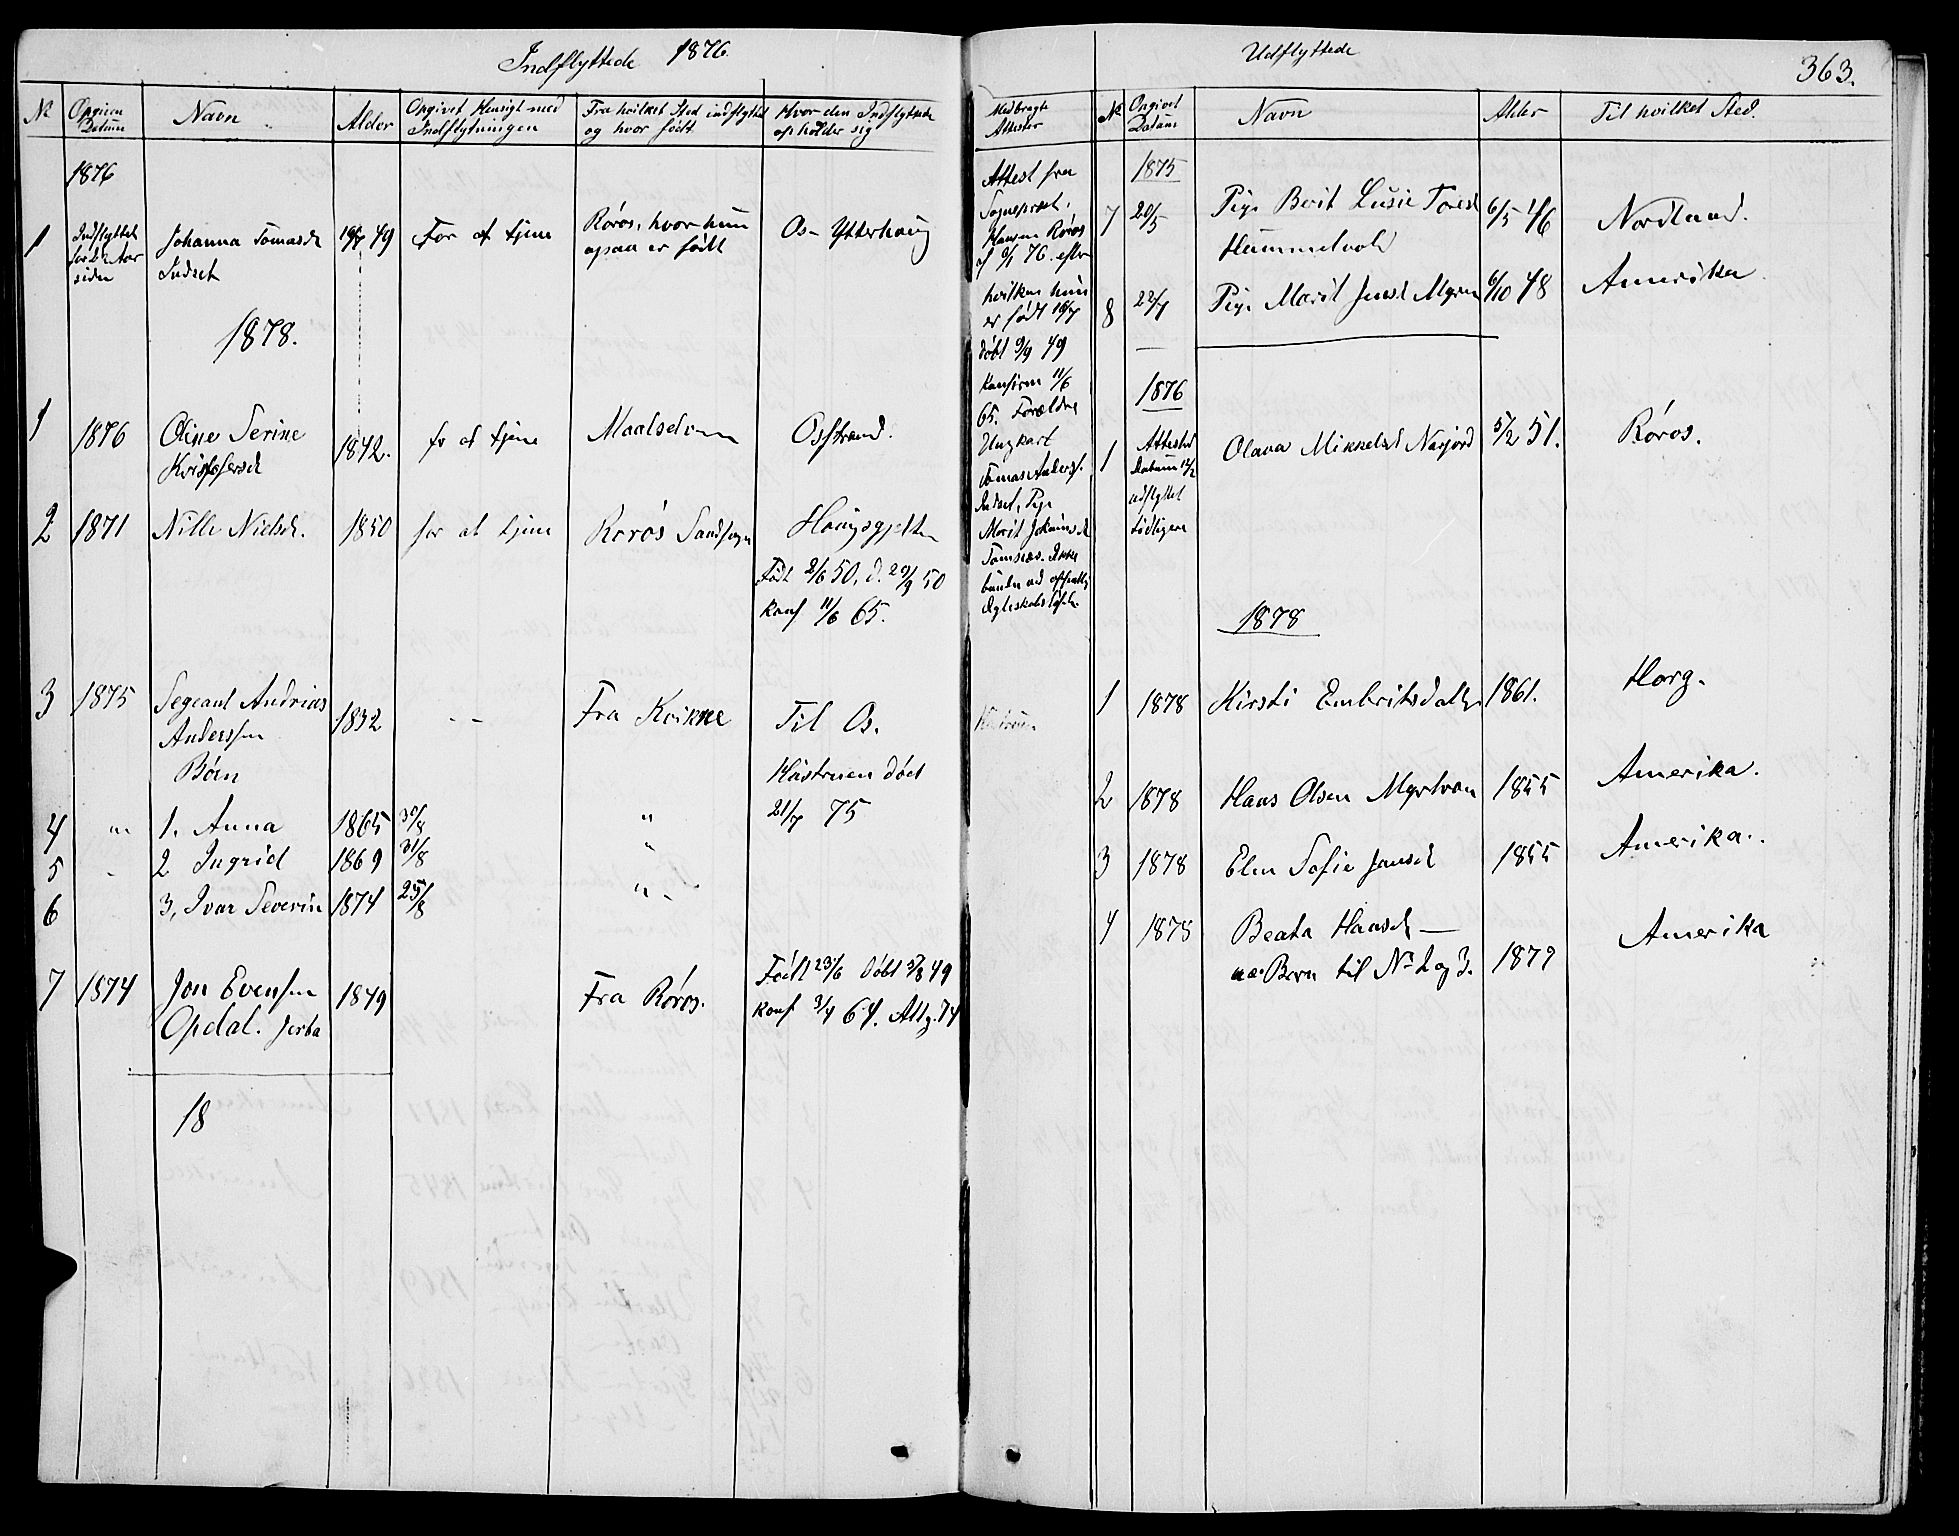 Indflyttede 1876.
No Opgiven Datum Navn Alder Opgivet Hensigt med Indflytningen Fra hvilket Sted indflyttet og hvor født Hvor den Indflyttede opholder sig Medbragte Attester
1876
1 Indflyttet for 2 Aar siden Johanna Tomasd 16/7 49 For at tjene Røros, hvor hun ogsaa er født Os- Ytterhaug
Indset
Attest fra
Sognepræst
Hansen Røros
af 9/1 76. efter
hvilken hun
er født 16/7
døbt 9/9 49
Konfirm 11/6
65. Forældre
Ungkarl
Tomas Anders.
Indset, Pige
Marit Joheimsd
Tamnes. Ikke
bunden ved offentlig
Egteskabsløfte.
1878.
1 1876 Oline Serine 1842. for at tjene Maalselven Osstrand.
Kristofersd
2 1871 Nille Nielsd. 1850 for at tjene Røros Landsogn Haugsgjelten
Født 2/6 50, d. 29/9 50
Konf 11/6 65.
3 1875 Segeant Andrias 1832 " Fra Kvikne Til Os.
Anderssen
Børn Hustruen død
21/7 75
4 " 1. Anna 1865 30/8 "
5 " 2 Ingrid 1869 31/8 "
6 3, Ivar Severin 1874 25/8 "
7 1874 Jon Evensen 1849 Fra Røros. Født 23/6 Døbt 5/8 49
Opdal. Konf 3/4 64. Att. 74
18
Udflyttede
363.
No Opgivet Datum Navn Alder Til hvilket Sted.
1875
7 20/5 Pige Berit Lusie Toresd 6/5 46 Nordland.
Hummelvold
8 22/7 Pige Marit Jensd Myren 6/10 48 Amerika
1876
1 Attestens Datum 12/2 udflyttet tidligere Olava Mikkelsd Narjord 5/2 51. Røros.
1878
1 1878 Kirsti Embritsdatter 1861. Horg.
2 1878 Hans Olsen Myrtroen 1855 Amerika.
3 1878 Elen Sofie Jansd 1855 Amerika.
4 1878 Beata Hansd — Amerika
Barn til No 2 og 3. 1877